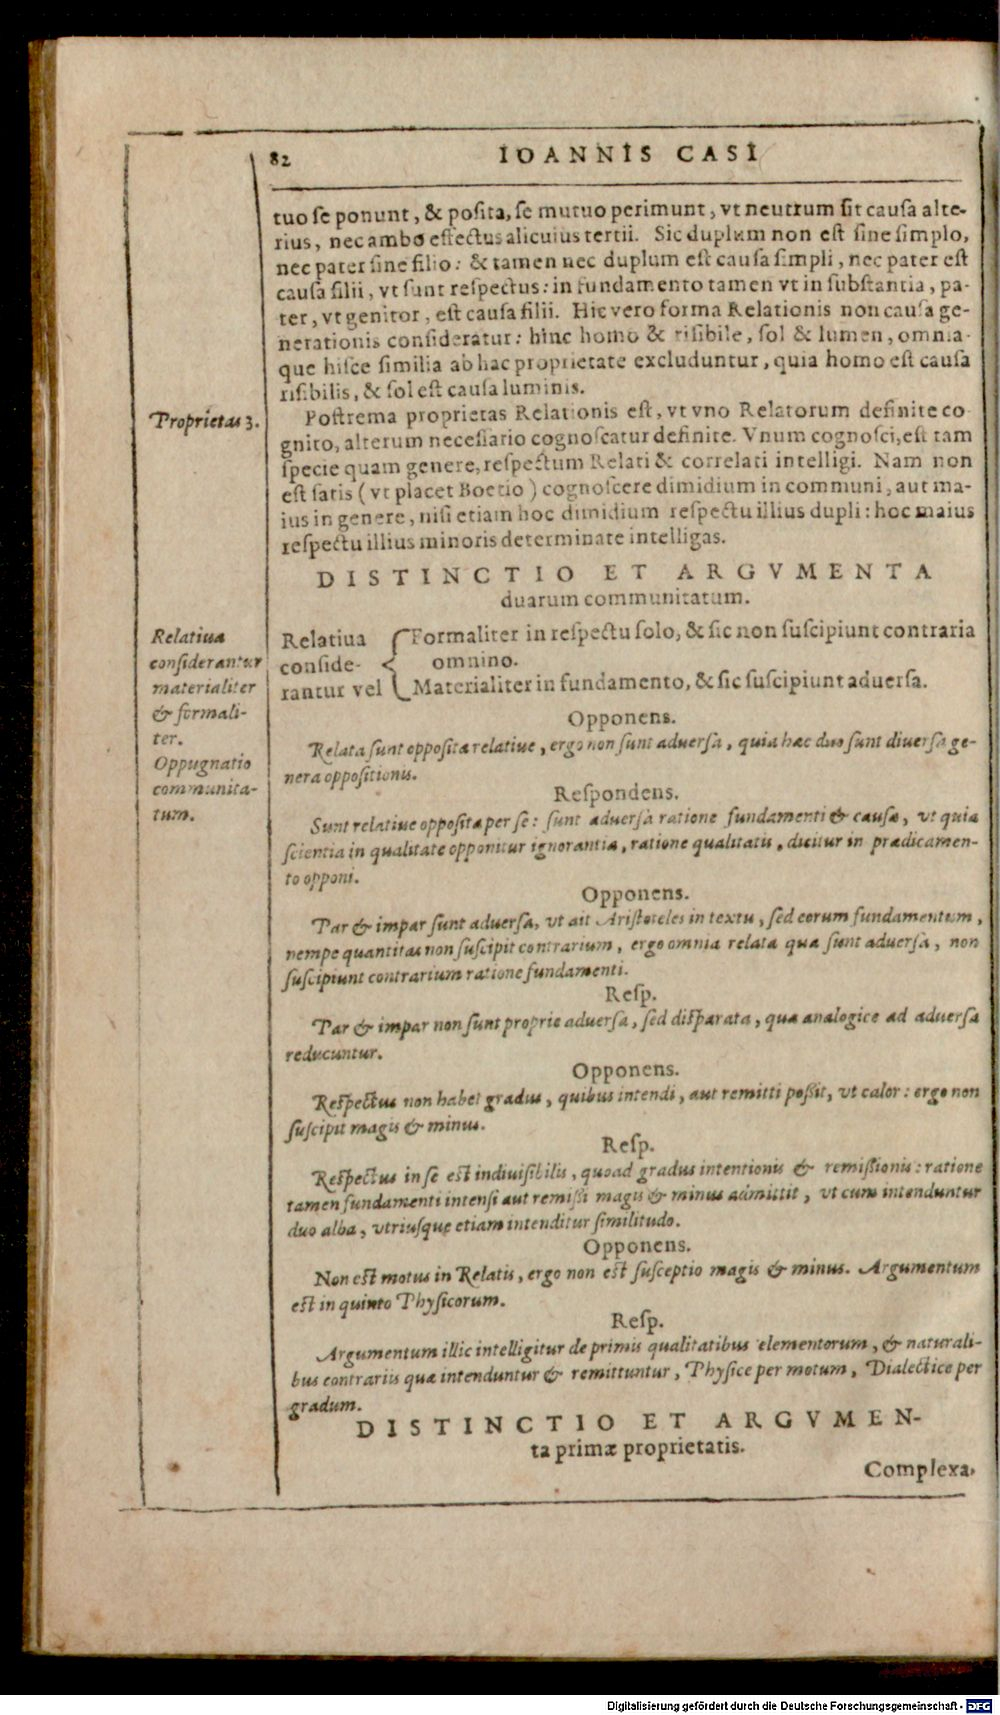 82 IOANNIS CASI
tuo se ponunt, & posita, se mutuo perimunt, vt neutrum sit causa alte-
rius, nec ambo effectus alicuius tertii. Sic duplum non est sine simplo,
nec pater sine filio: & tamen nec duplum est causa simpli, nec pater est
causa filii, vt sunt respectus: in fundamento tamen vt in substantia, pa-
ter, vt genitor, est causa filii. Hic vero forma Relationis non causa ge-
nerationis consideratur: hinc homo & risibile, sol & lumen, omnia-
que hisce similia ab hac proprietate excluduntur, quia homo est causa
risibilis, & sol est causa luminis.
Proprietas 3.
Postrema proprietas Relationis est, vt vno Relatorum definite co
gnito, alterum necessario cognoscatur definite. Vnum cognosci, est tam
specie quam genere, respectum Relati & correlati intelligi. Nam non
est satis (vt placet Boetio) cognoscere dimidium in communi, aut ma-
ius in genere, nisi etiam hoc dimidium respectu illius dupli: hoc maius
respectu illius minoris determinate intelligas.
DISTINCTIO ET ARGVMENTA
duarum communitatum.
Relatiua
considerantur
materialiter
& formali-
ter.
Oppugnatio
communita-
tum.
Relatiua
conside-
rantur vel
Formaliter in respectu solo, & sic non suscipiunt contraria
omnino.
Materialiter in fundamento, & sic suscipiunt aduersa.
Opponens.
Relata sunt opposita relatiue, ergo non sunt aduersa, quia hæc duo sunt diuersa ge-
nera oppositionis.
Respondens.
Sunt relatiue opposita per se: sunt aduersa ratione fundamenti & causæ, vt quia
scientia in qualitate opponitur ignorantia, ratione qualitatis, dicitur in prædicamen-
to opponi.
Opponens.
Par & impar sunt aduersa, vt ait Aristoteles in textu, sed eorum fundamentum,
nempe quantitas non suscipit contrarium, ergo omnia relata qua sunt aduersa, non
suscipiunt contrarium ratione fundamenti.
Resp.
Par & impar non sunt proprie aduersa, sed disparata, quæ analogice ad aduersa
reducuntur.
Opponens.
Respectus non habet gradus, quibus intendi, aut remitti possit, vt calor: ergo non
suscipit magis & minus.
Resp.
Respectus in se est indiuisibilis, quoad gradus intentionis & remissionis: ratione
tamen fundamenti intensi aut remissi magis & minus admittit, vt cum intenduntur
duo alba, vtriusque etiam intenditur similitudo.
Opponens.
Non est motus in Relatis, ergo non est susceptio magis & minus. Argumentum
est in quinto Physicorum.
Resp.
Argumentum illic intelligitur de primis qualitatibus elementorum, & naturali-
bus contrariis quæ intenduntur & remittuntur, Physice per motum, Dialectice per
gradum.
DISTINCTIO ET ARGVMEN-
ta primæ proprietatis.
Complexa.
Digitalisierung gefördert durch die Deutsche Forschungsgemeinschaft - DFG